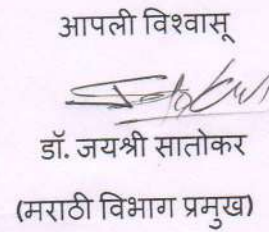 आपली विश्वासू
डॉ. जयश्री सातोकर
(मराठी विभाग प्रमुख)